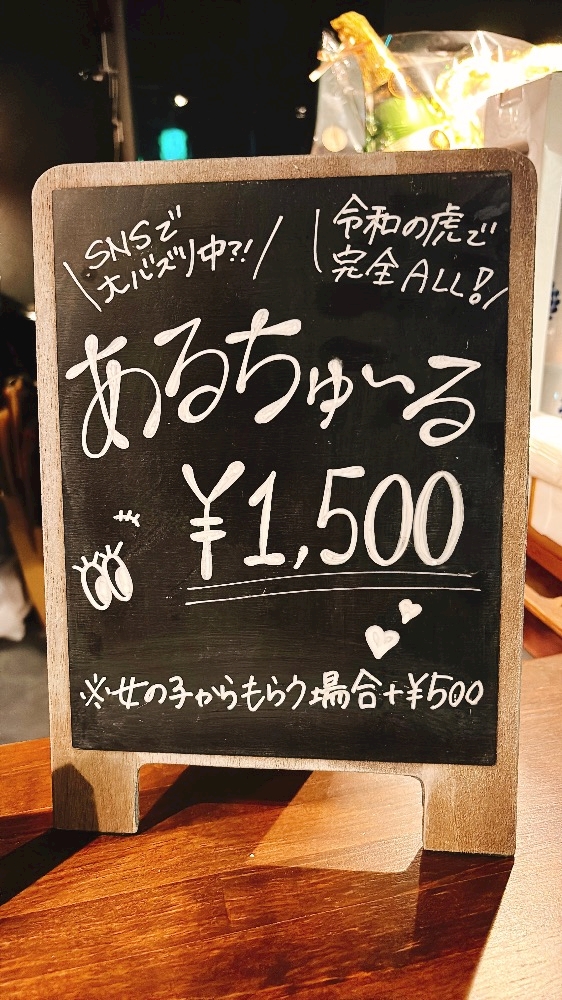 SNSで
大バズり中?!
令和の虎で
完全ALL!
あるちゅ〜る
¥1,500
※女の子からもらう場合+¥500